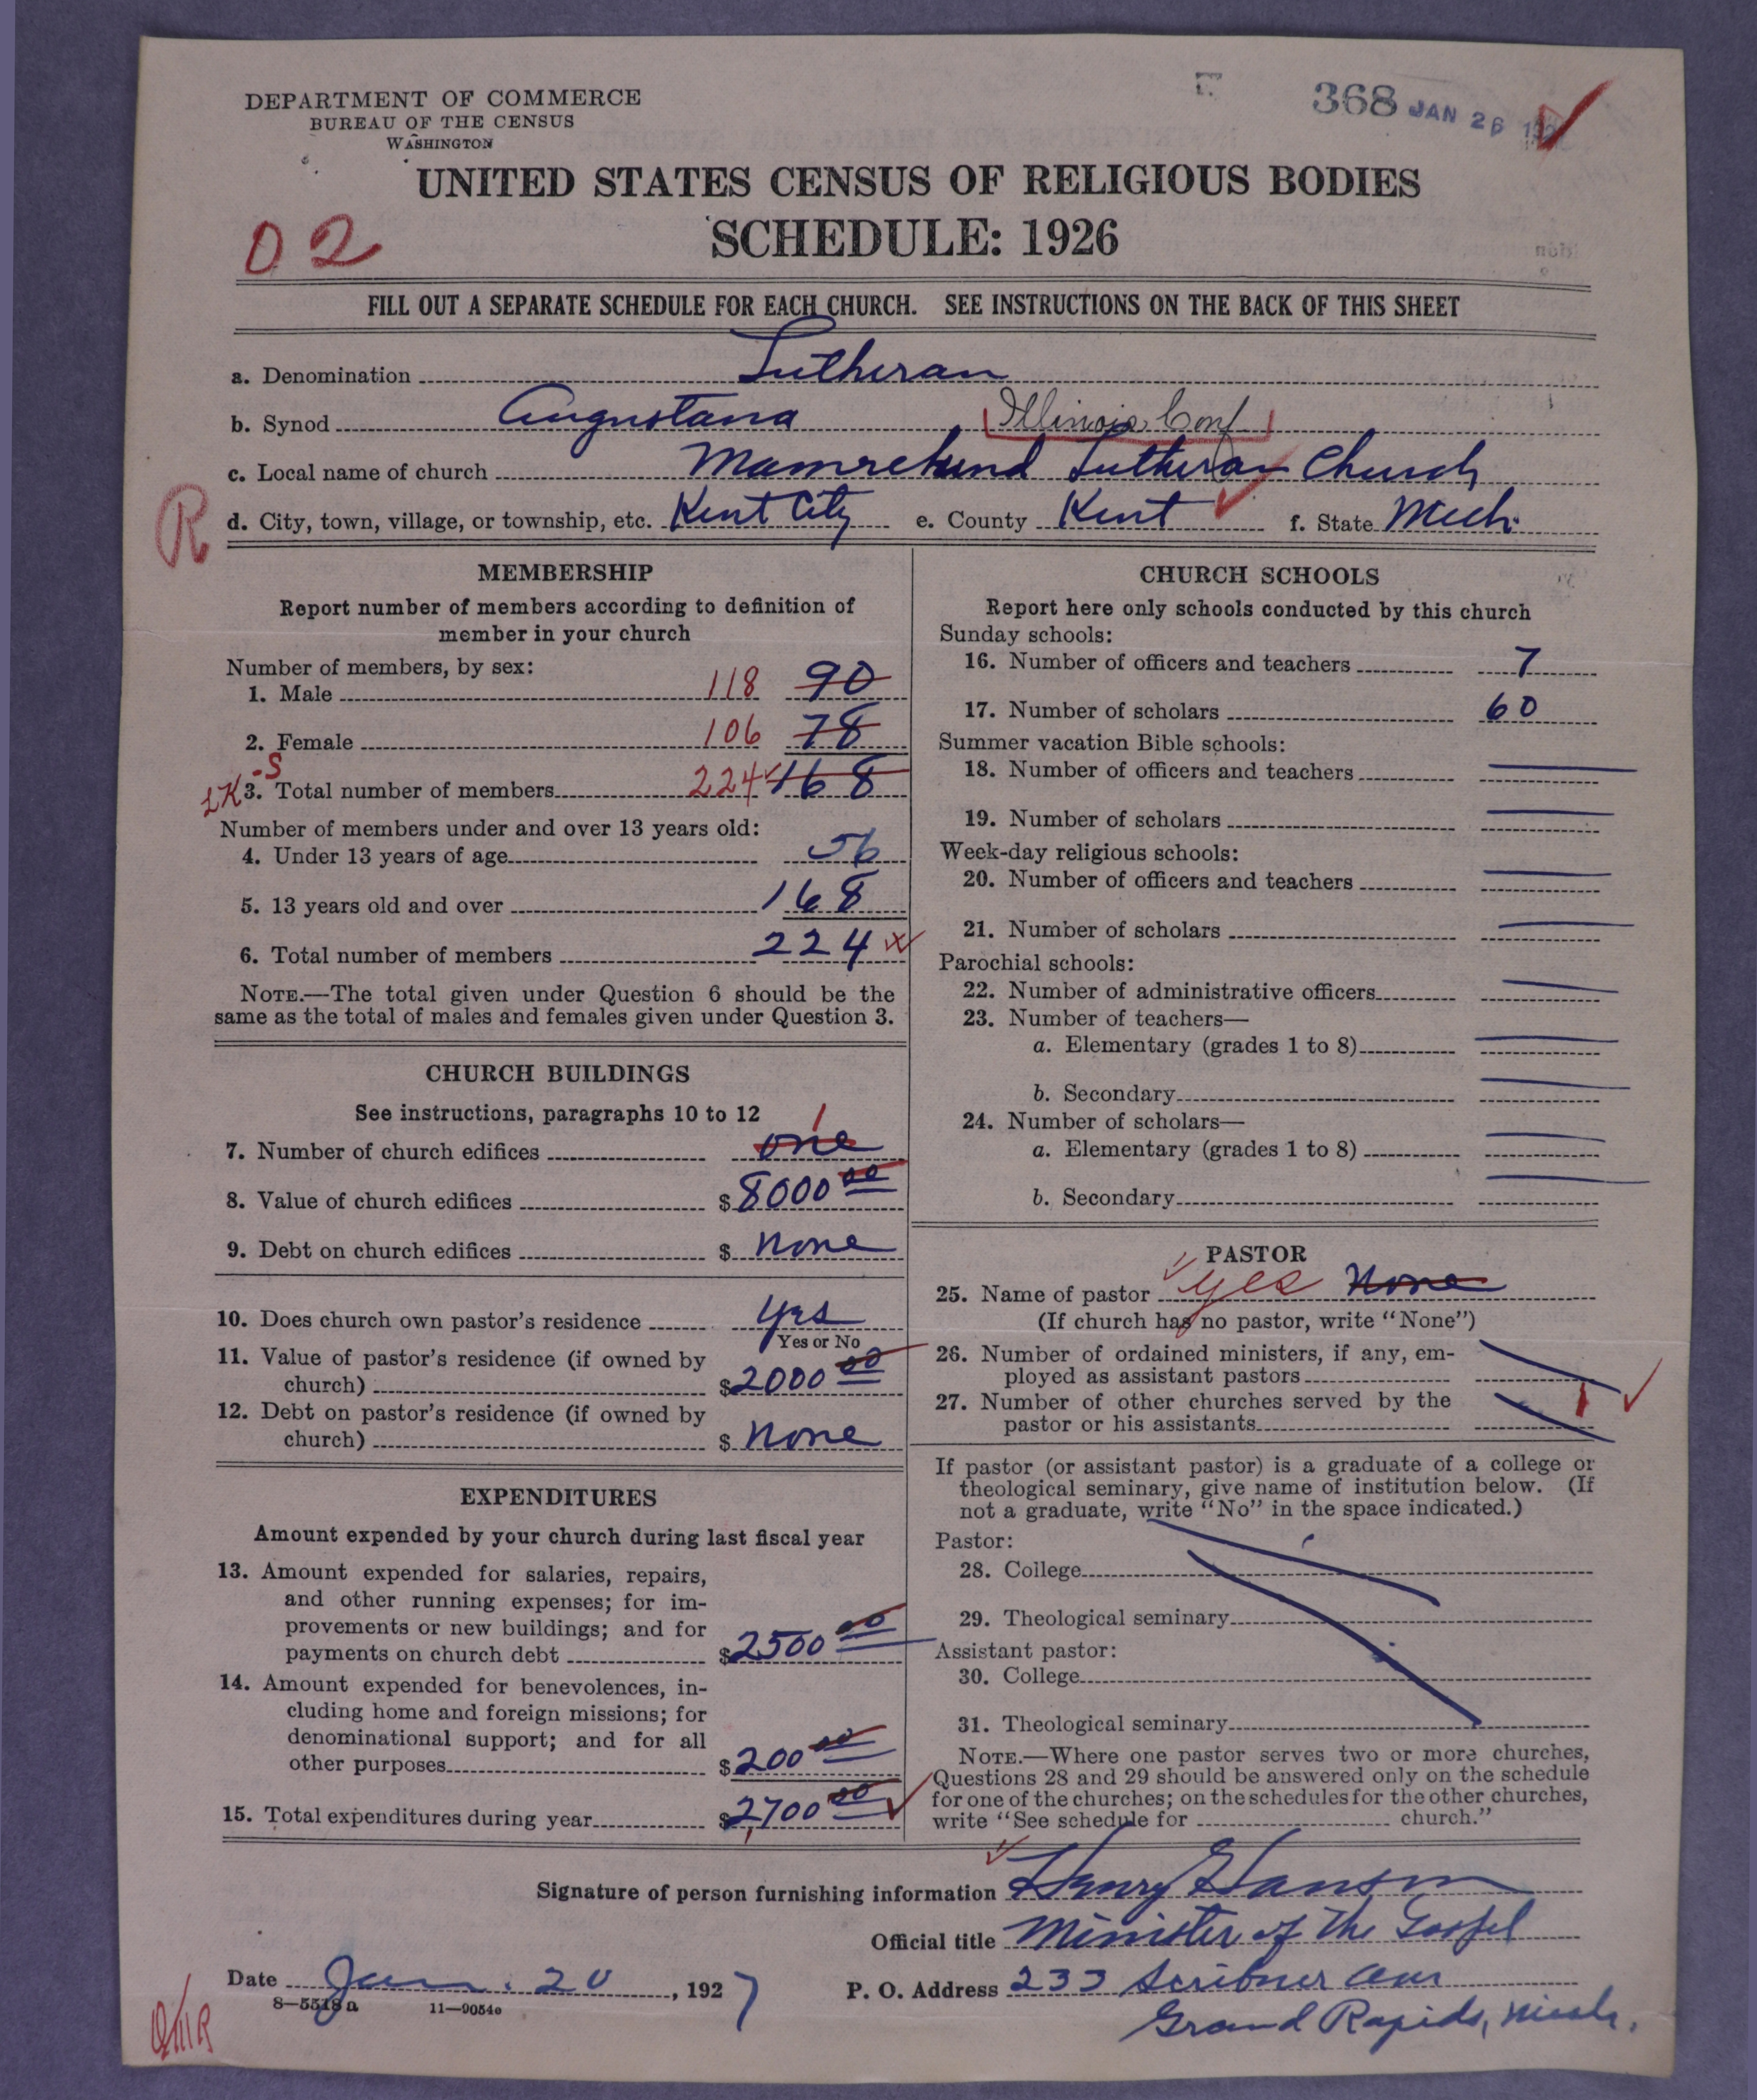 368 JAN 26
DEPARTMENT OF COMMERCE
BUREAU OF THE CENSUS
WASHINGTON
UNITED STATES CENSUS OF RELIGIOUS BODIES
SCHEDULE: 1926
02
FILL OUT A SEPARATE SCHEDULE FOR EACH CHURCH. SEE INSTRUCTIONS ON THE BACK OF THIS SHEET
a. Denomination Lutheran
b. Synod Augustana Illinois Conf
c. Local name of church Mamrelund Lutheran Church
R
d. City, town, village, or township, etc. Kent City e. County Kent f. State Mich.
MEMBERSHIP
Report number of members according to definition of
member in your church
Number of members, by sex:
1. Male 118 90
2. Female 106 78
3. Total number of members 224 168
Number of members under and over 13 years old:
4. Under 13 years of age 56
5. 13 years old and over 168
6. Total number of members 224
NOTE.—The total given under Question 6 should be the
same as the total of males and females given under Question 3.
CHURCH BUILDINGS
See instructions, paragraphs 10 to 12
7. Number of church edifices one 1
8. Value of church edifices $ 8000 00
9. Debt on church edifices $ None
10. Does church own pastor's residence yes
Yes or No
11. Value of pastor's residence (if owned by
church) $ 2000 00
12. Debt on pastor's residence (if owned by
church) $ None
EXPENDITURES
Amount expended by your church during last fiscal year
13. Amount expended for salaries, repairs,
and other running expenses; for im-
provements or new buildings; and for
payments on church debt $ 2500 00
14. Amount expended for benevolences, in-
cluding home and foreign missions; for
denominational support; and for all
other purposes $ 200 00
15. Total expenditures during year $ 2700 00
CHURCH SCHOOLS
Report here only schools conducted by this church
Sunday schools:
16. Number of officers and teachers 7
17. Number of scholars 60
Summer vacation Bible schools:
18. Number of officers and teachers
19. Number of scholars
Week-day religious schools:
20. Number of officers and teachers
21. Number of scholars
Parochial schools:
22. Number of administrative officers
23. Number of teachers—
a. Elementary (grades 1 to 8)
b. Secondary
24. Number of scholars—
a. Elementary (grades 1 to 8)
b. Secondary
PASTOR
25. Name of pastor yes None
(If church has no pastor, write "None")
26. Number of ordained ministers, if any, em-
ployed as assistant pastors
27. Number of other churches served by the
pastor or his assistants 1
If pastor (or assistant pastor) is a graduate of a college or
theological seminary, give name of institution below. (If
not a graduate, write "No" in the space indicated.)
Pastor:
28. College
29. Theological seminary
Assistant pastor:
30. College
31. Theological seminary
NOTE.—Where one pastor serves two or more churches,
Questions 28 and 29 should be answered only on the schedule
for one of the churches; on the schedules for the other churches,
write "See schedule for church."
Signature of person furnishing information Henry Hanson
Official title Minister of the Gospel
Date Jan. 20, 1927 P. O. Address 233 Scribner Ave
8—5518a 11—9054e
Grand Rapids, Mich.